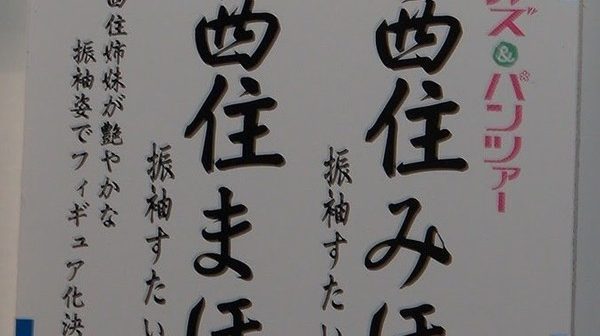 ズ&パンツァー
西住みほ
振袖すたい
西住まほ
振袖すたい
西住姉妹が艶やかな
振袖姿でフィギュア化決